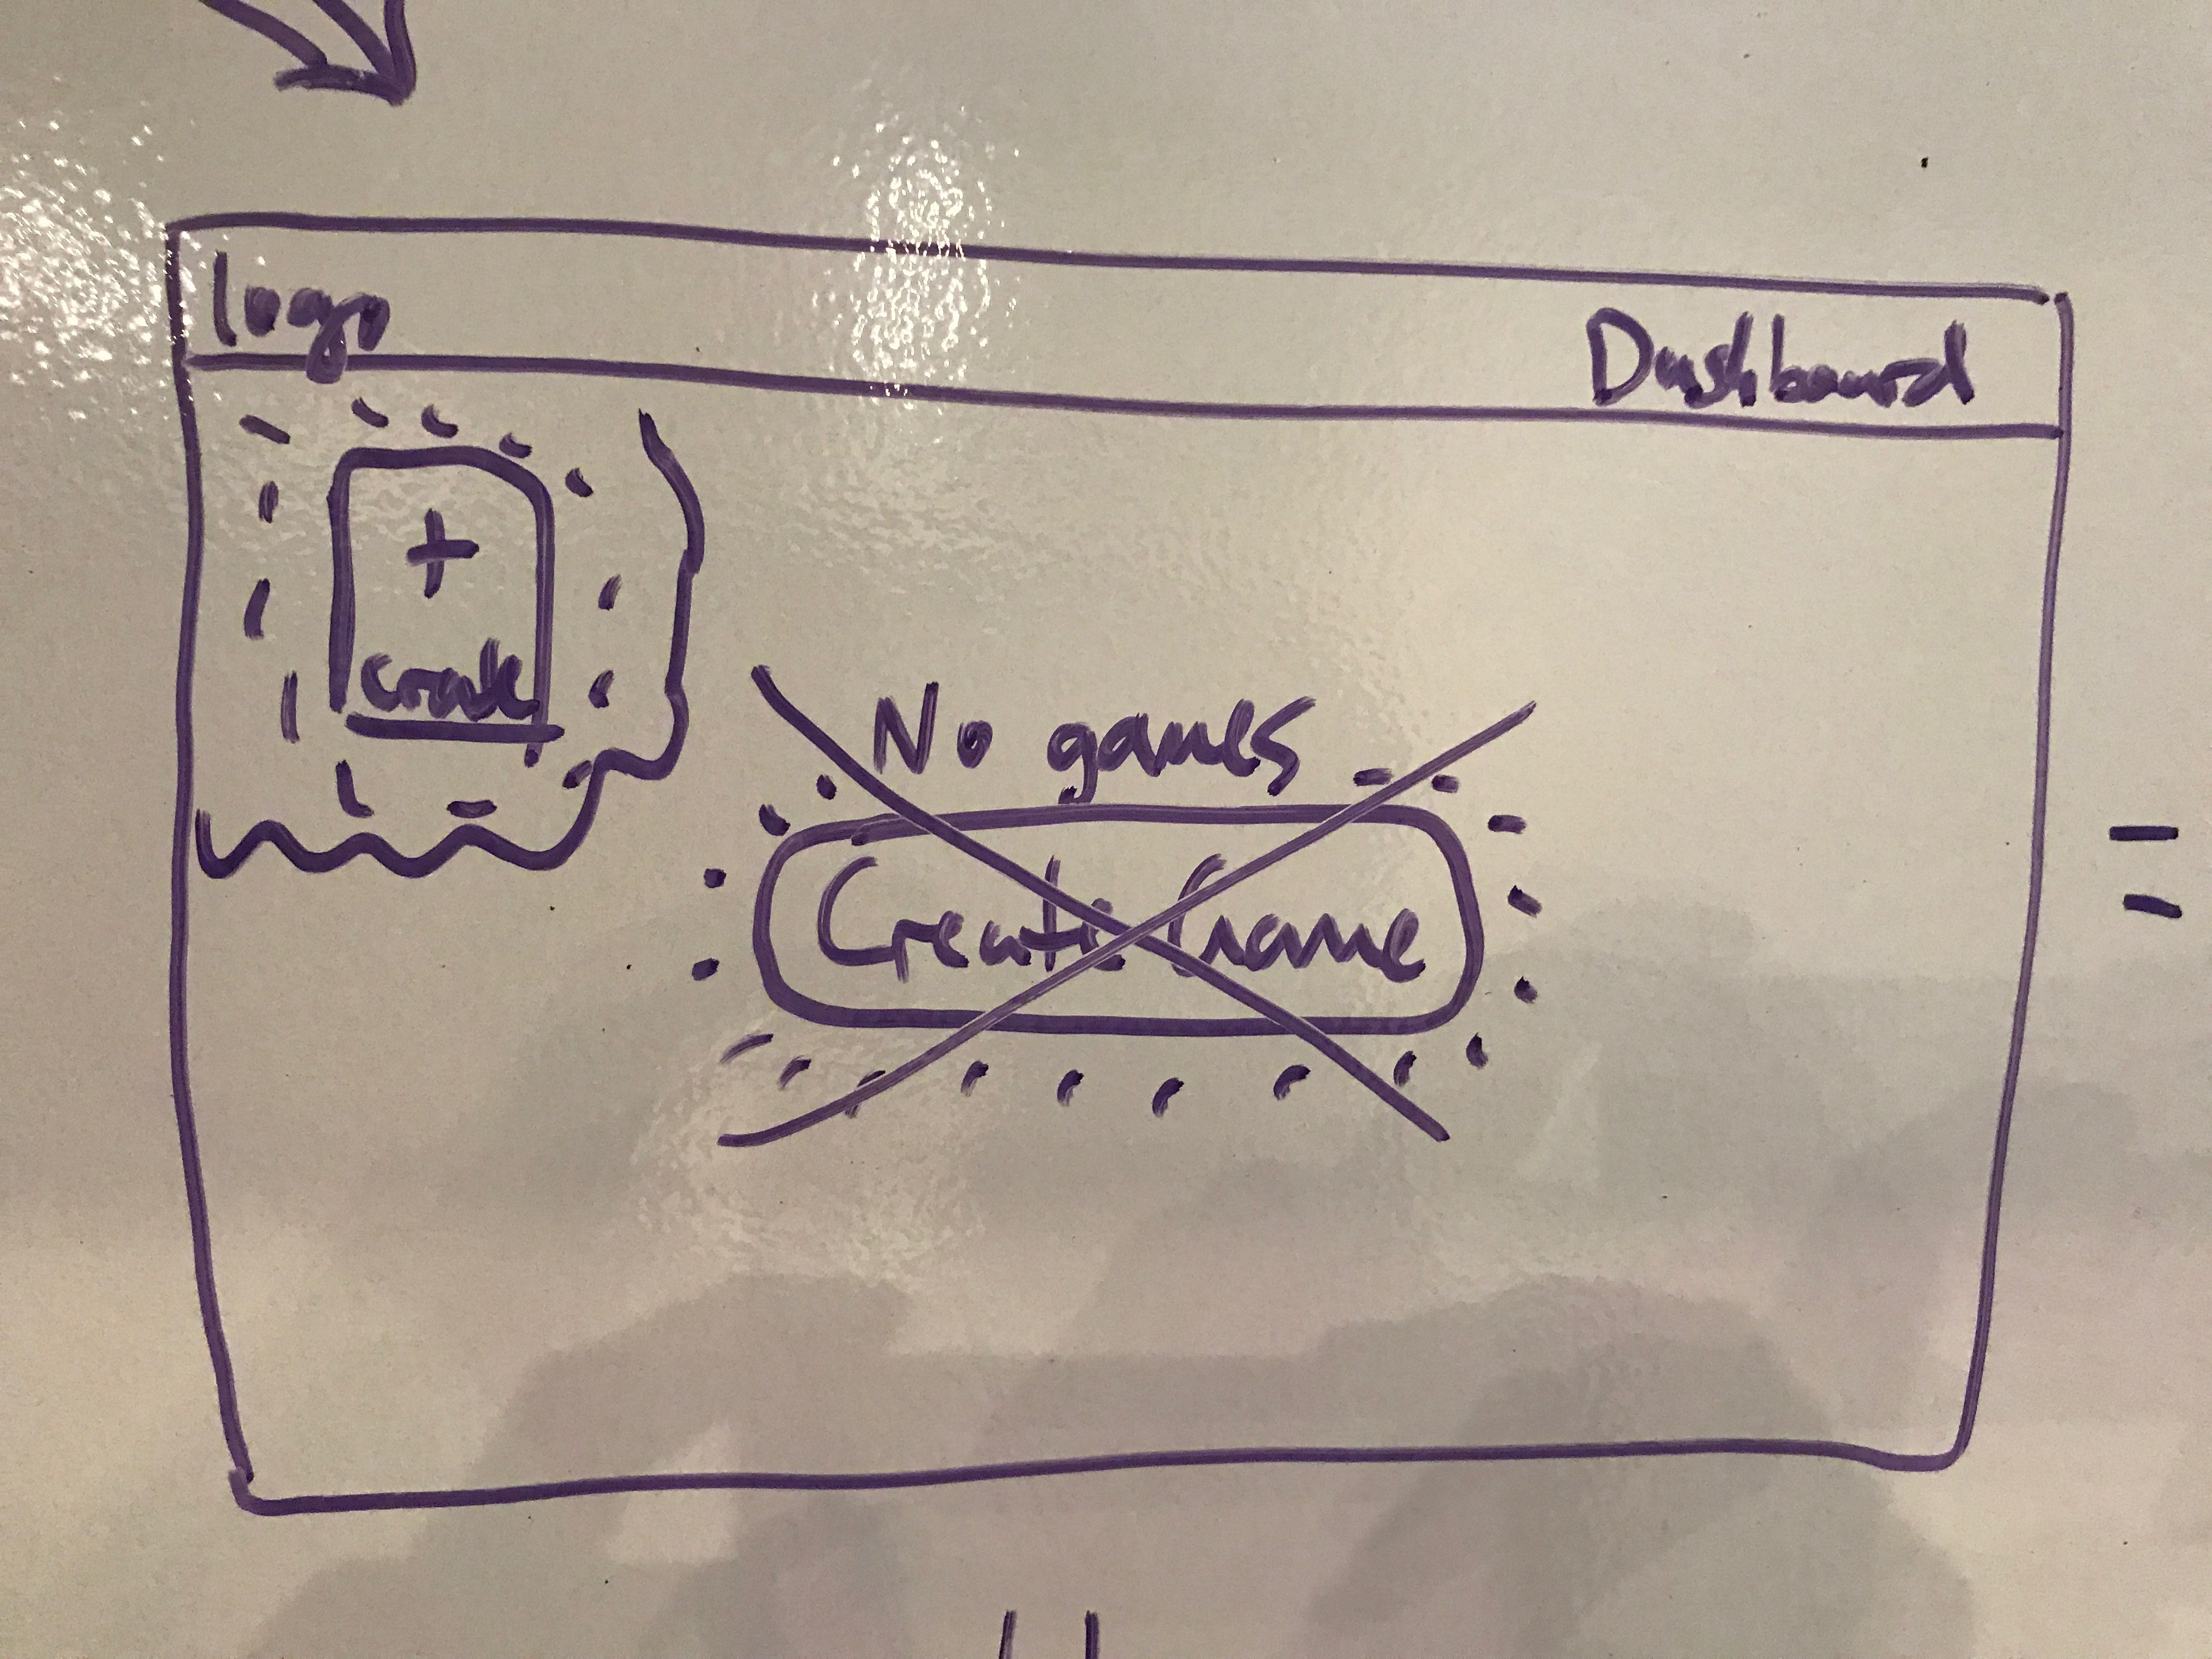 logo
Dashboard
+
create
No games
Create Game